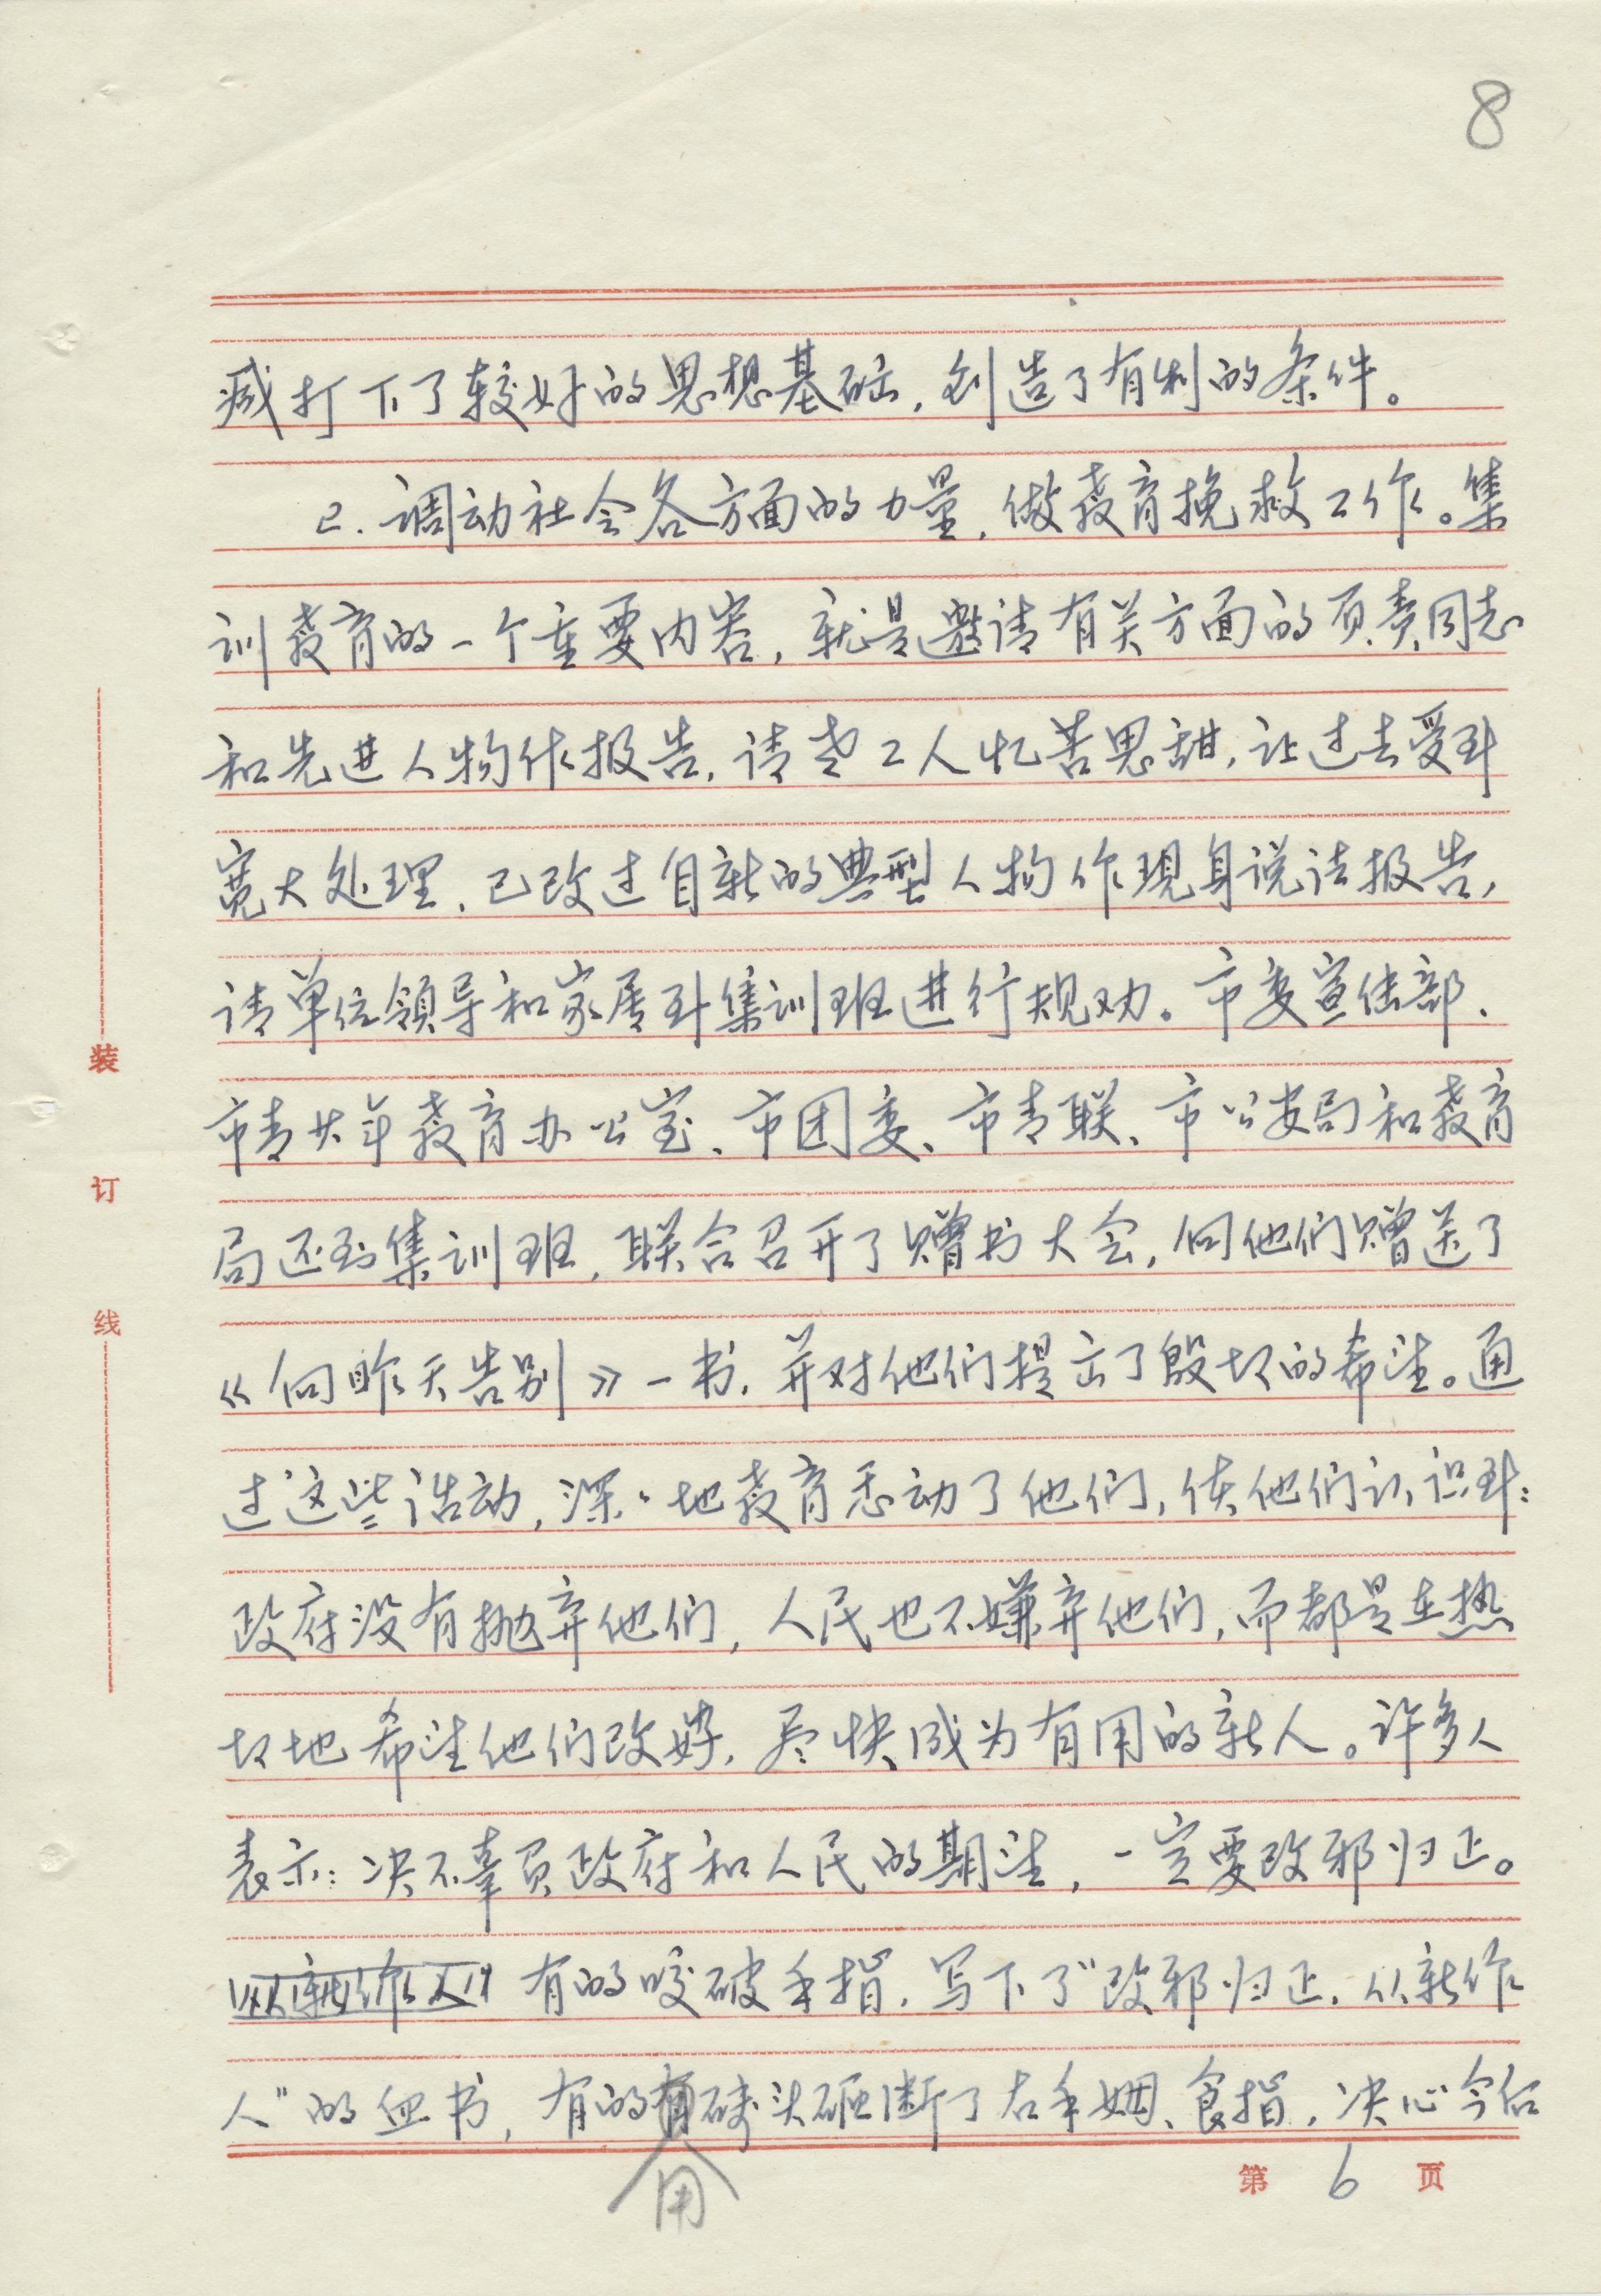 8
臧打下了较好的思想基础，创造了有利的条件。
已．调动社会各方面的力量，做教育挽救工作。集
训教育的一个重要内容，就是邀请有关方面的负责同志
和先进人物作报告，请老工人忆苦思甜，让过去受到
宽大处理、已改过自新的典型人物作现身说法报告，
请单位领导和家属到集训班进行规劝。市委宣传部、
市青少年教育办公室、市团委、市青联、市公安局和教育
局还到集训班，联合召开了赠书大会，向他们赠送了
《向昨天告别》一书，并对他们提出了殷切的希望。通
过这些活动，深深地教育感动了他们，使他们认识到：
政府没有抛弃他们，人民也不嫌弃他们，而都是在热
切地希望他们改好，尽快成为有用的新人。许多人
表示：决不辜负政府和人民的期望，一定要改邪归正。
有的咬破手指，写下了“改邪归正，从新作
人”的血书，有的用砖头砸断了右手姆、食指，决心今后
装
订
线
第 6 页